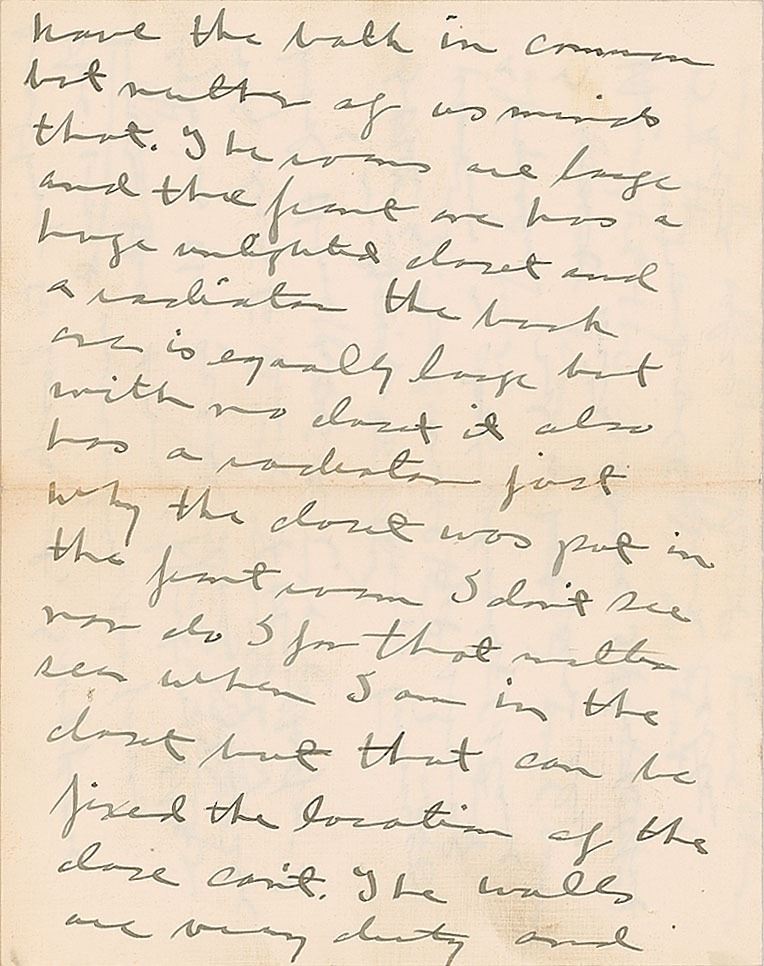 have the bath in common
but neither of us minds
that. The rooms are large
and the front one has a
huge unlighted closet and
a radiator the back
one is equally large but
with no closet it also
has a radiator just
why the closet was put in
the front room I don't see
nor do I for that matter
see when I am in the
closet but that can be
fixed the location of the
close can't. The walls
are very dirty and